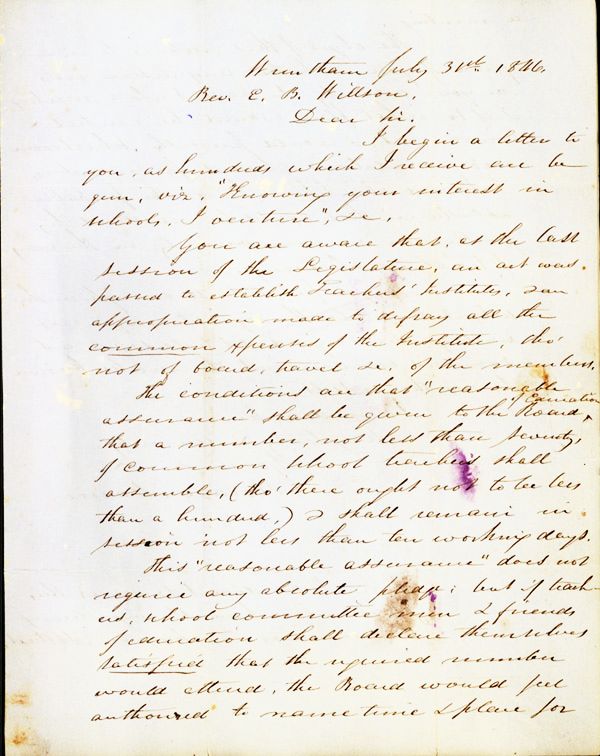 Wrentham July 31st. 1846.
Rev. E. B. Willson,
Dear Sir.
I begin a letter to
you, as hundreds which I receive are be
gun, viz. "Knowing your interest in
schools, I venture", &c.
You are aware that, at the last
session of the Legislature, an act was
passed to establish Teachers' Institutes, & an
appropriation made to defray all the
common expenses of the Institute, tho'
not of board, travel &c. of the members.
The conditions are that "reasonable
assurance" shall be given to the Board
of Education
that a number, not less than seventy,
of common school teachers shall
assemble, (tho' there ought not to be less
than a hundred,) & shall remain in
session not less than ten working days.
This "reasonable assurance" does not
require any absolute pledge; but if teach-
ers, school committee men & friends
of education shall declare themselves
satisfied that the required number
would attend, the Board would feel
authorized to name time & place for